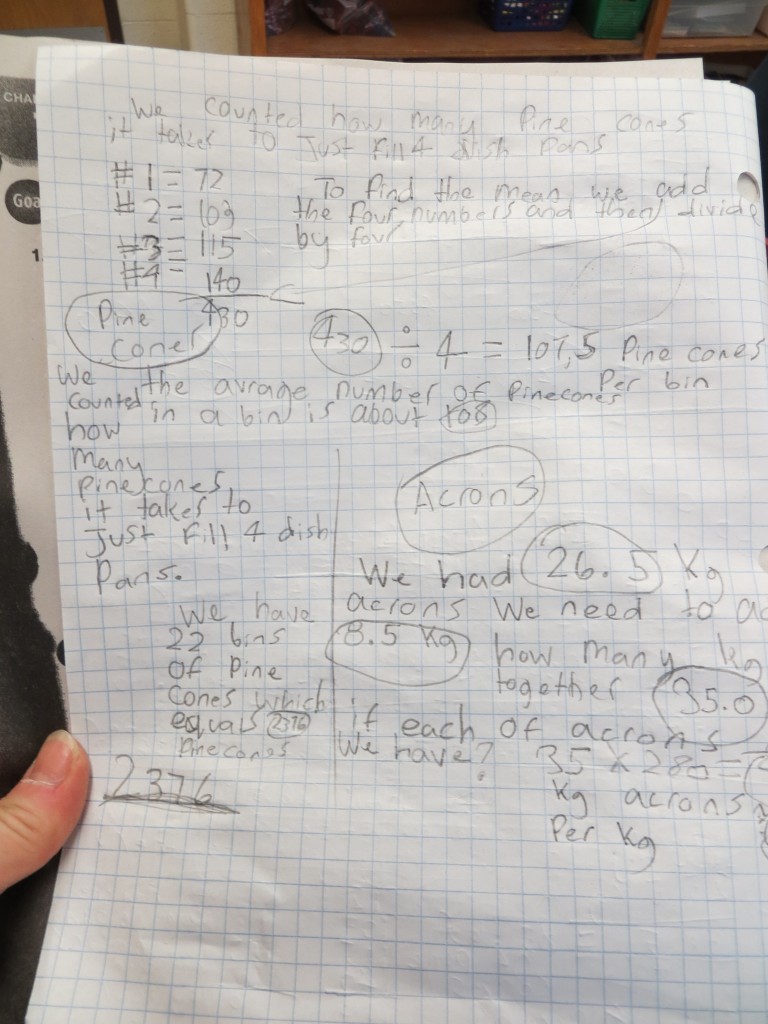 CHA
Goa
1.
We counted how many Pine cones
it takes to Just Fill 4 dish pans
#1 = 72
#2 = 103
#3 = 115
#4 = 140
To find the mean we add
the four numbers and then divide
by four
430
Pine
Cones
430 ÷ 4 = 107,5 Pine cones
Per bin
the avrage number of Pinecones
in a bin is about 108
We
counted
how
many
pinexcones
it takes to
Just Fill 4 dish
Pans.
We have
22 bins
of Pine
Cones which
equals 2376
Pinecones
2376
Acrons
We had 26.5 Kg
acrons We need to
8.5 Kg how many kg
together 35.0
if each of acrons
We have? 35 x 280 =
Kg acrons
Per Kg